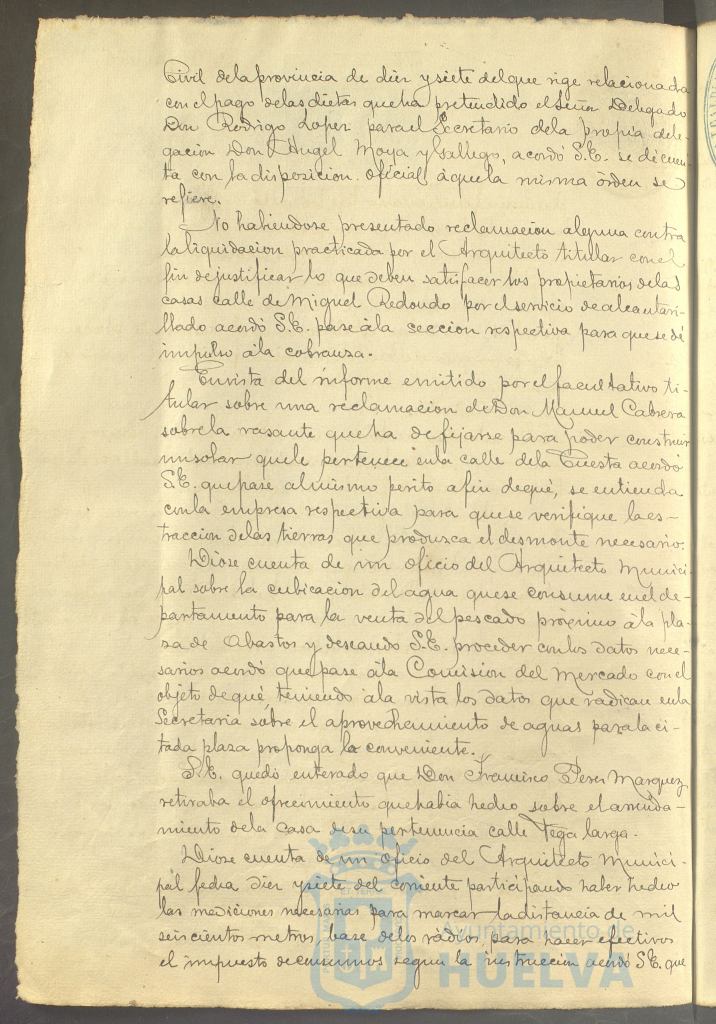 Civil dela provincia de diez y siete del que rige relacionada
con el pago delas dietas que ha pretendido el Señor Delegado
Don Rodrigo Lopez para el Secretario dela propia dele-
gacion Don Angel Moya y Gallego, acordó S.E. se dé cuen-
ta con la disposicion oficial á que la misma órden se
refiere.
No habiendose presentado reclamacion alguna contra
la liquidacion practicada por el Arquitecto titular con el
fin de justificar lo que deben satisfacer los propietarios delas
casas calle de Miguel Redondo por el servicio de alcantari-
llado acordó S.E. pase á la seccion respectiva para que se dé
impulso á la cobranza.
En vista del informe emitido por el facultativo ti-
tular sobre una reclamacion de Don Manuel Cabrera
sobre la rasante que ha de fijarse para poder construir
un solar que le pertenece en la calle dela Cuesta acordó
S.E. que pase al mismo perito a fin de qué, se entienda
con la empresa respectiva para que se verifique la es-
traccion delas tierras que produzca el desmonte necesario.
Diose cuenta de un oficio del Arquitecto Munici-
pal sobre la cubicacion del agua que se consume en el de-
partamento para la venta del pescado próximo á la pla-
za de Abastos y deseando S.E. proceder con los datos nece-
sarios acordó que pase á la Comision del Mercado con el
objeto de qué teniendo á la vista los datos que radican en la
Secretaria sobre el aprovechemiento de aguas para la ci-
tada plaza proponga lo conveniente.
S.E. quedó enterado que Don Francisco Perez Marquez
retiraba el ofrecimiento que habia hecho sobre el arrenda-
miento dela casa de su pertenencia calle Vega larga.
Diose cuenta de un oficio del Arquitecto Munici-
pal fecha diez y siete del corriente participando haber hecho
las mediciones necesarias para marcar la distancia de mil
seiscientos metros, base delos rádios para hacer efectivos
el impuesto de consumos segun la instruccion acordó S.E. que
Ayuntamiento de
HUELVA